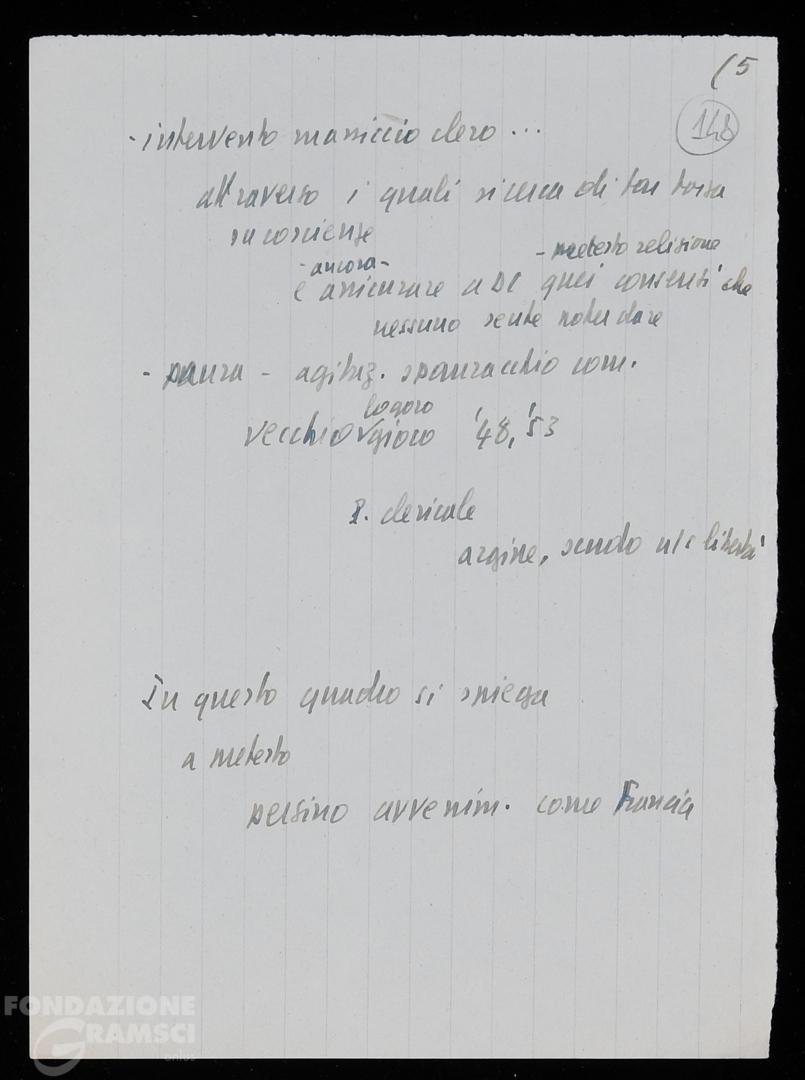 (5
148
- intervento massiccio clero ...
attraverso i quali si cerca di far forza
su coscienze
- ancora -
- pretesto religione
e assicurare a DC quei consensi che
nessuno sente poter dare
- paura - agitaz. spauracchio com.
logoro
vecchio √ gioco '48, '53
clericale
argine, scudo libertà
In questo quadro si spiega
a pretesto
persino avvenim. come Francia
FONDAZIONE
GRAMSCI
onlus